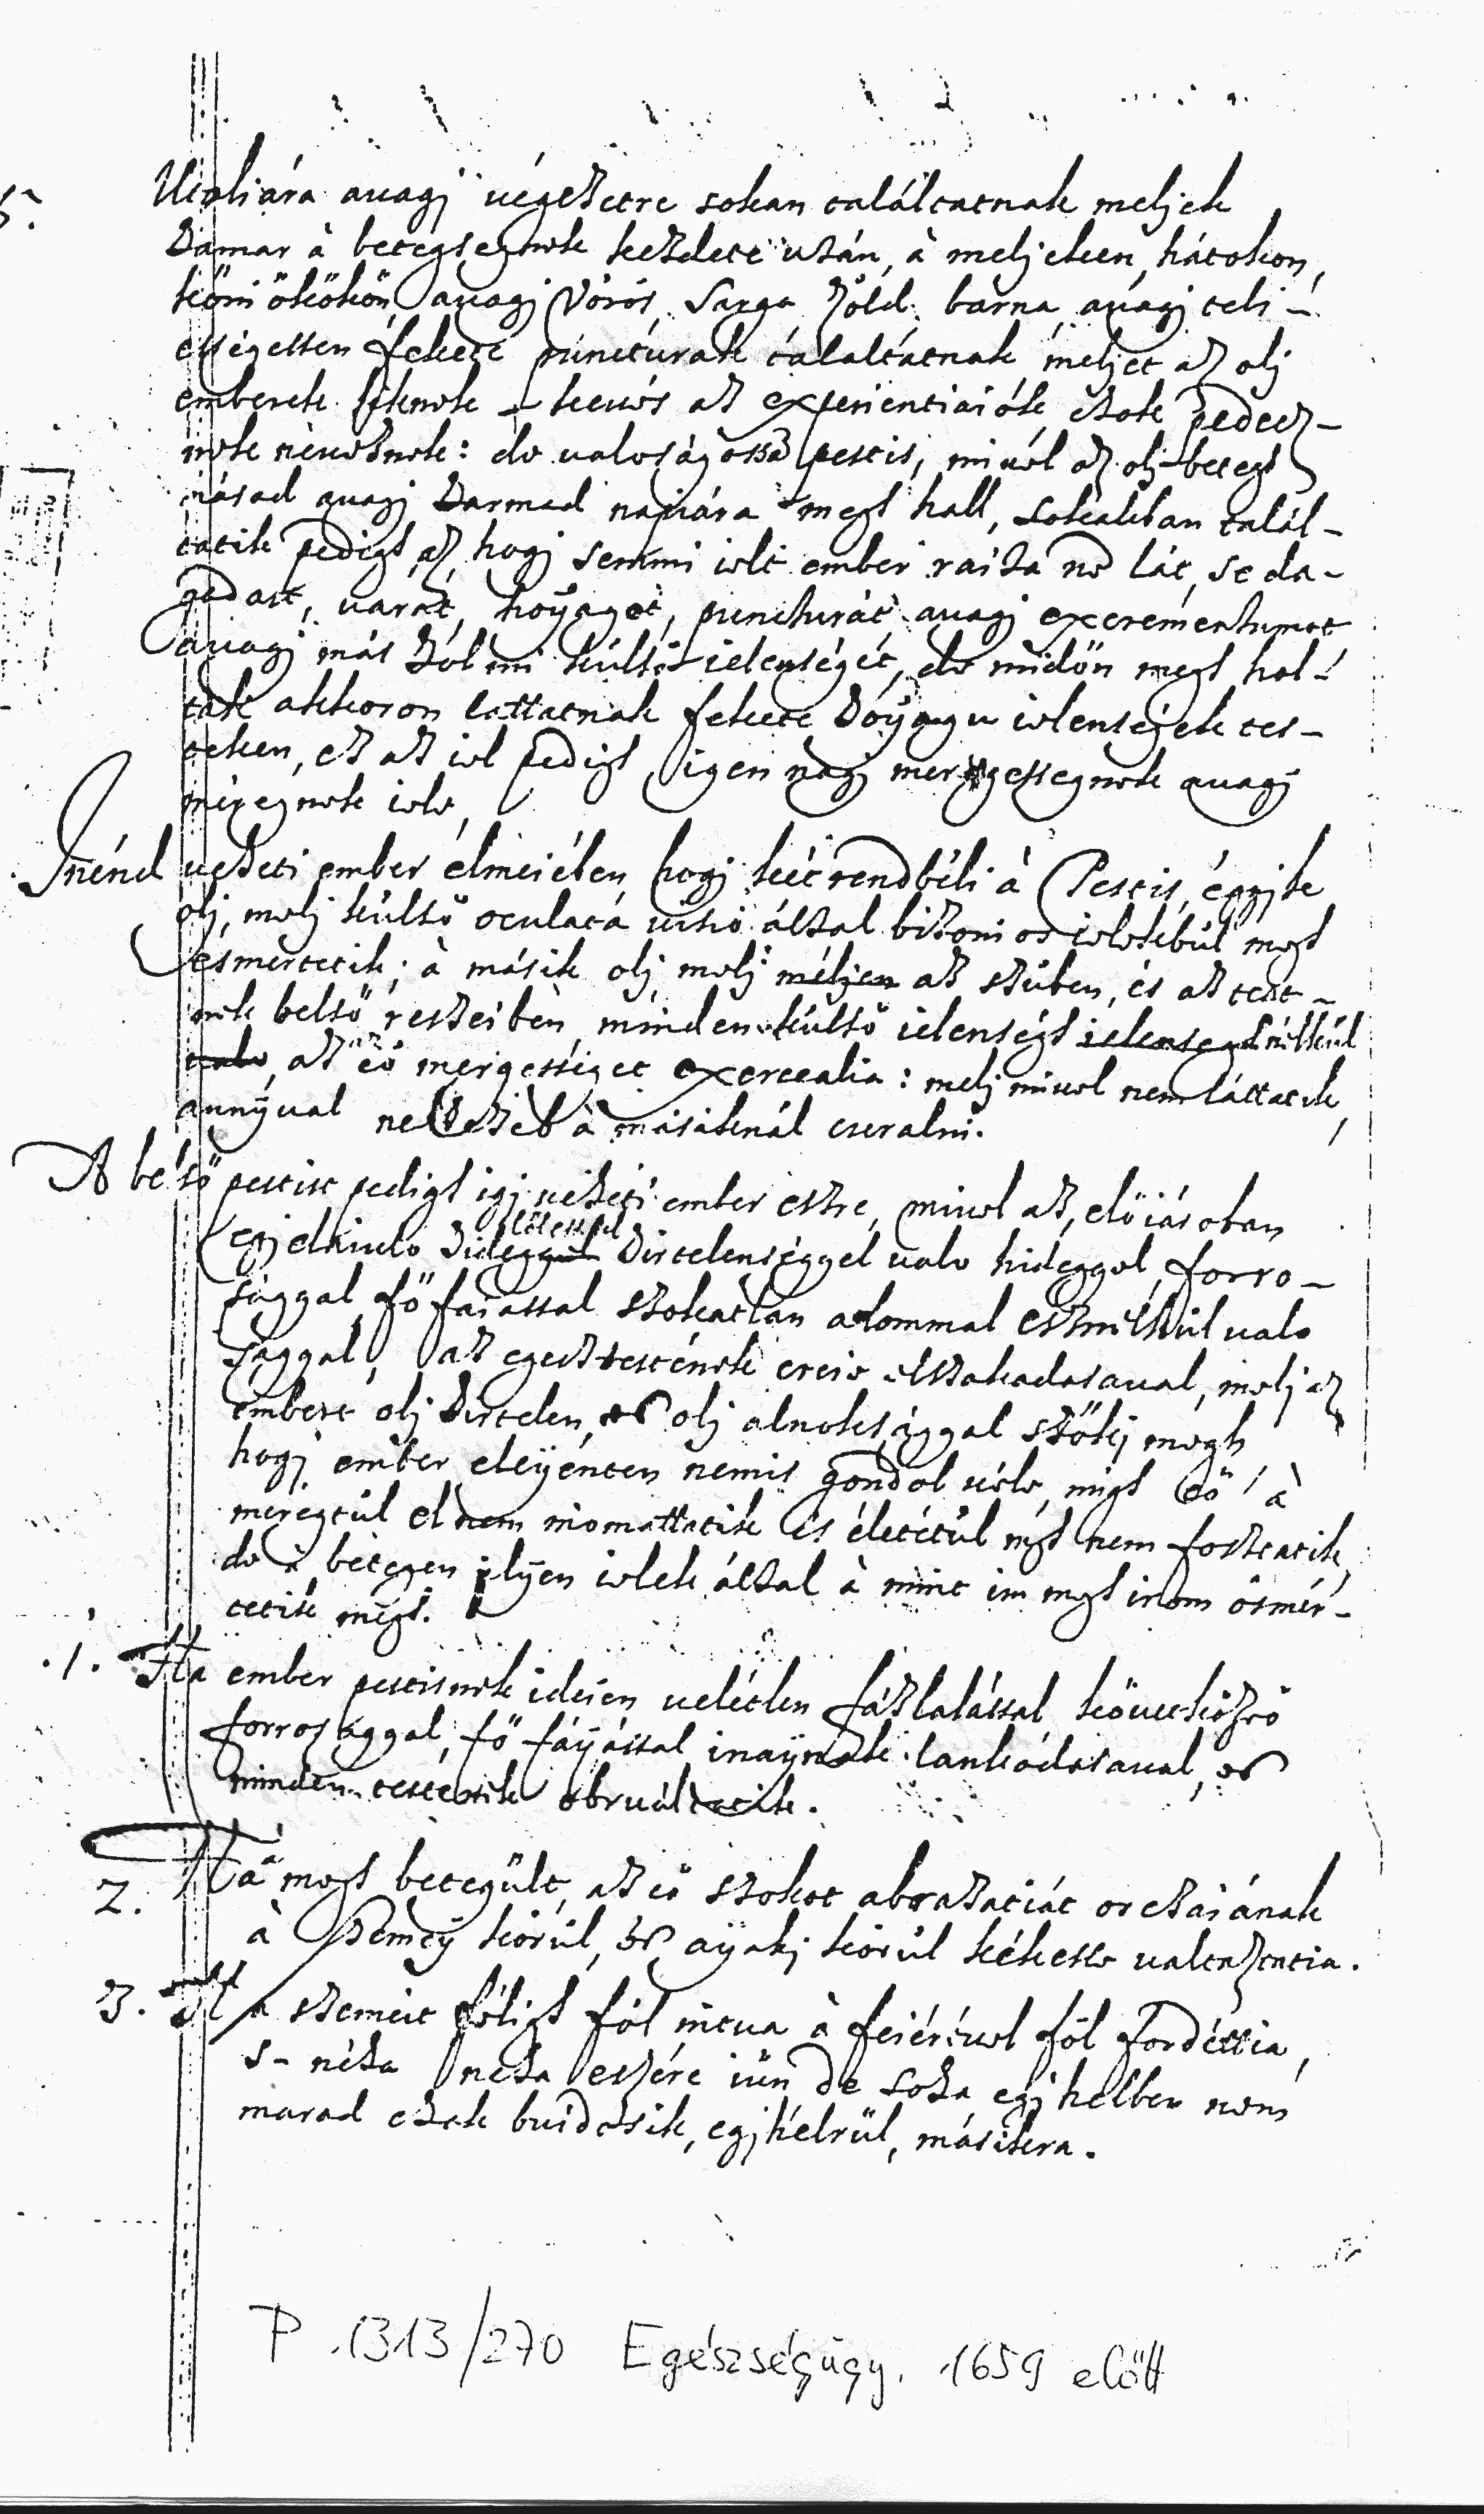 5.
Utoliára avagÿ végezetre sokan találtatnak meljek
hamar à betegsegnek kezdete után, à meljeken, hátokon,
köniökökön, avagj Vörös, Sarga Zöld, barna, avagj telj-
essegessen fekete punctúrak talaltatnak, meljet az olj
emberek kiknek kevés az experientiaiók, ezek pedecz-
nek neveznek: de valoságossa pestis, mivel az olj beteg
másad avagj harmad napiára megh hall, sokakban talál-
tatik pedigh az, hogj semmi jelt ember raita ne lát, se da-
gadast, varát, hóÿagot, puncturát avagj excrementumot
avagj más külömi külső jelenségét, de midőn megh hol-
tak akkoron láttatnak fekete hoÿagu jelenségek tes-
teken, ez az jel pedigh, igen nagj mergessegnek avagj
méregnek jele,
Innénd veheti ember elméiében hogj két rendbéli à Pestis, éggjik
olj, melj külső oculata visio által bizonios jelekbül megh
esmertetik; à másik olj, melj méljen az szüben, és az test-
nek belső reszeiben minden külső jelenségh jelensegh nélkül
vale, az eö mergességet exercealia: melj mivel nem láttatik,
annÿval nehezeb à másiknál curalni.
A belső pestist pedigh igj veheti ember eszre, mivel az, előjáróban
egj elkivlo hideggel lélessel hirtelenséggel valo hideggel, forro-
saggal, főfaiassal szokatlan alommal esznélkül valo
saggal, az egesz testének ereie elszakadasaval, melj az
embert olj hirtelen, és olj alnoksággal szökj megh
hogj ember eleÿénten nemis gondol véle, migh eö à
méregtül el nem niomattatik és életétül megh nem fosztatik,
de à betegen ilÿen jelek által à mint im megh irom ösmér-
tetik megh.
.1. Ha ember pestisnek idején veletlen fázlalással, következö
forrosággal, fő fáÿással inaÿnak lankadasaval, és
minden testestik obruáltatik.
2. Ha à megh betegült, az eö szokot abrazatiát orczaiának
à szemeÿ körül, és aÿakj körül kékesse valtoztatia.
3. Ha szemeit féligh föl nitva à feiérével föl fordéttia,
s- néha neha eszére iün de soha egj helben nem
marad ezek buidosik, egj helrül, másikra.
P .1313/270 Egészségügy. 1659 előtt